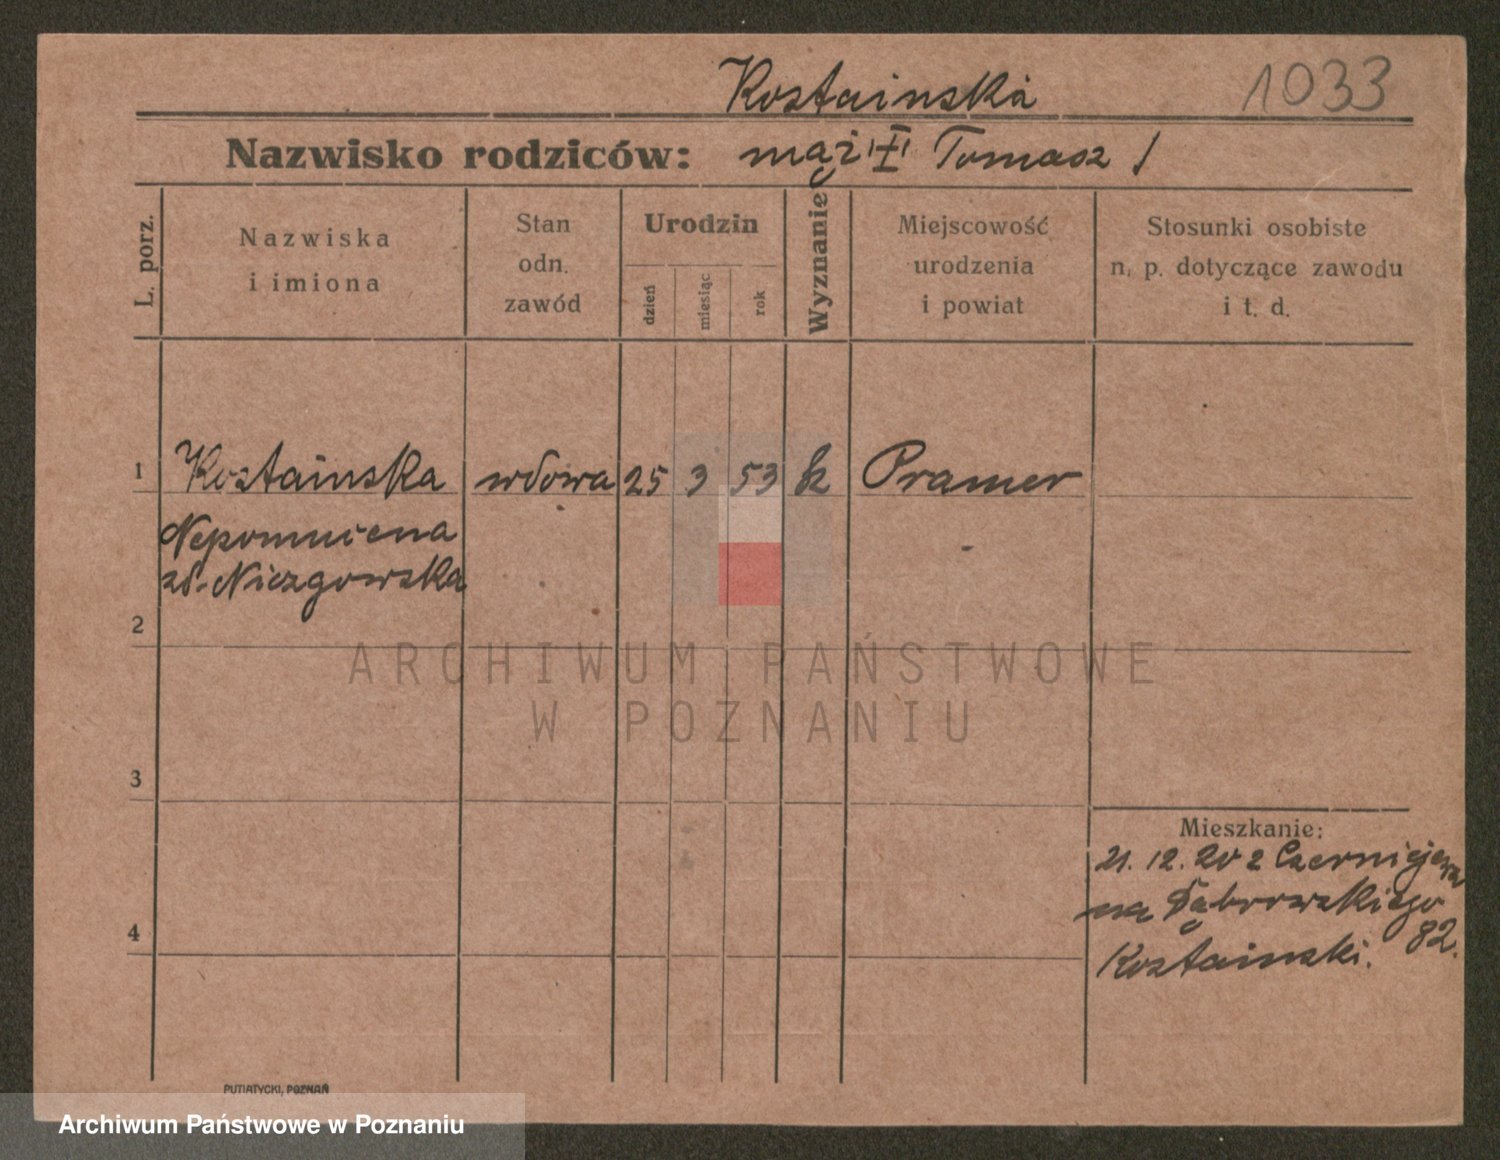 Kostainska 1033
Nazwisko rodziców: mąż "I" Tomasz /
L. porz.
Nazwiska
i imiona
Stan
odn.
zawód
Urodzin
dzień
miesiąc
rok
Wyznanie
Miejscowość
urodzenia
i powiat
Stosunki osobiste
n. p. dotyczące zawodu
i t. d.
1 Kostainska wdowa 25 3 53 k Pramer
Nepomucena
zd. Niezgowska
2
3
4
Mieszkanie:
21. 12. 20 z Czerniejewa
na Dąbrowskiego
82.
Kostainski.
ARCHIWUM PAŃSTWOWE
W POZNANIU
PUTIATYCKI, POZNAŃ
Archiwum Państwowe w Poznaniu